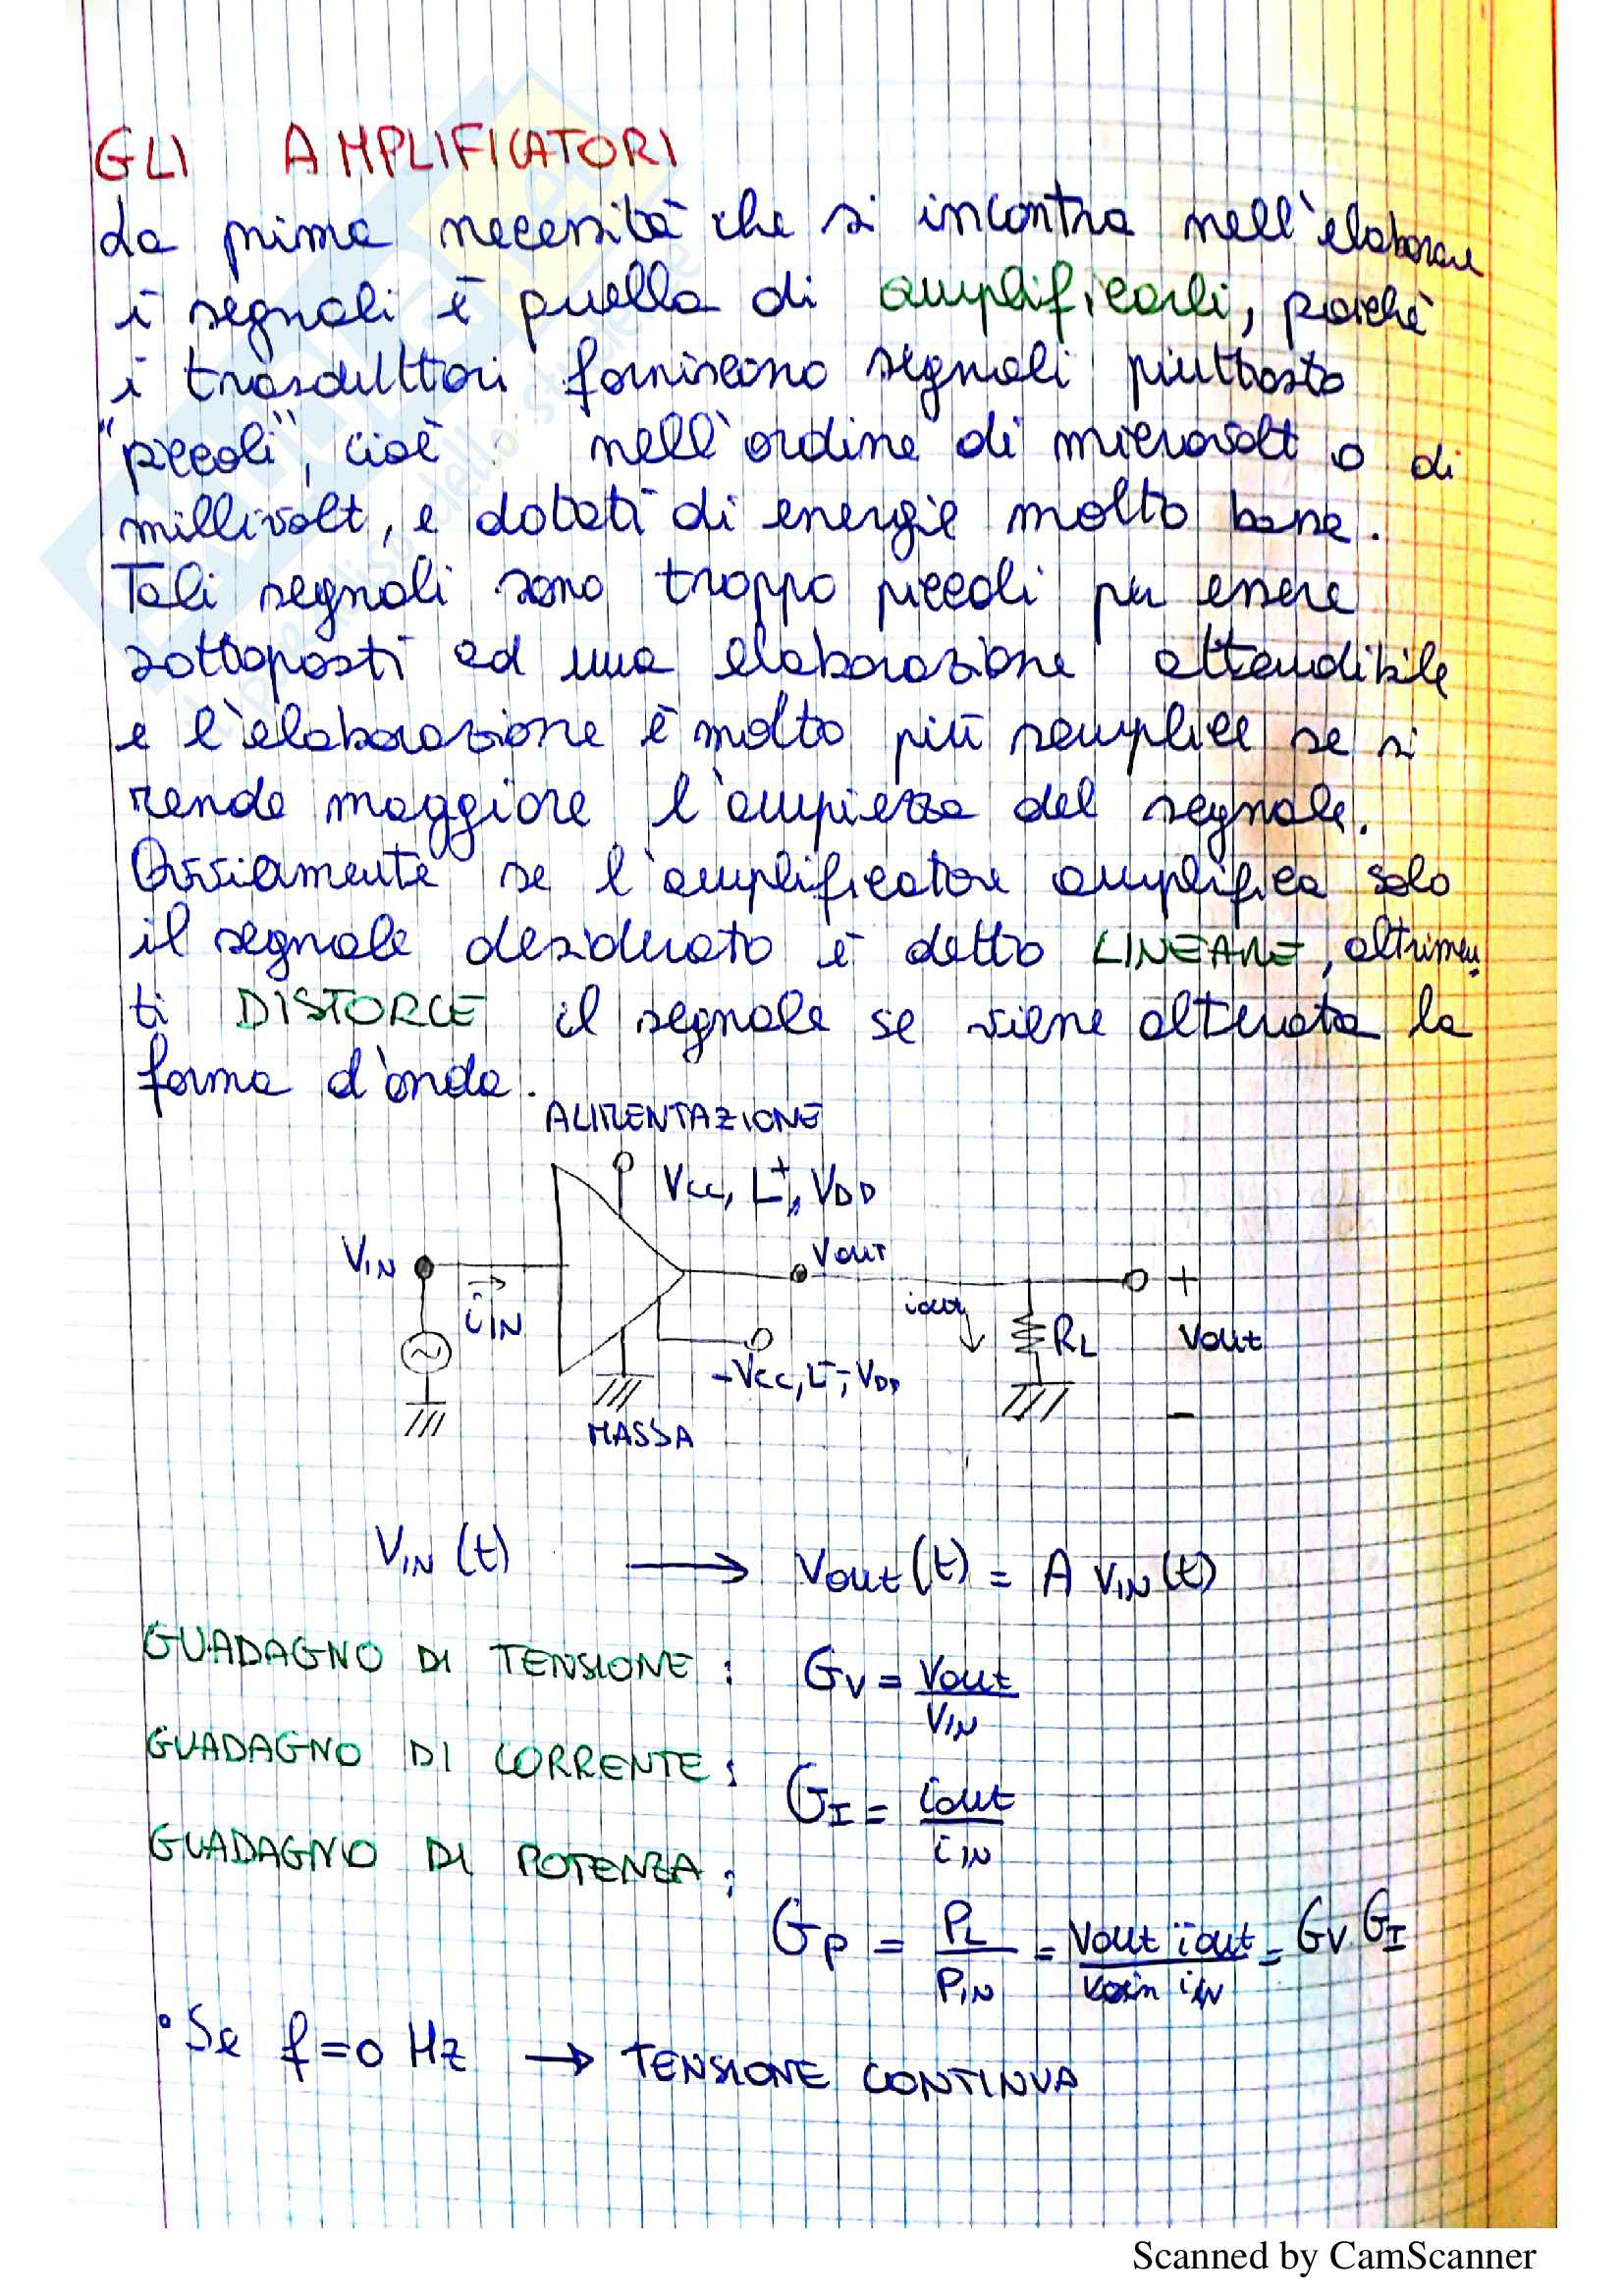 GLI AMPLIFICATORI
La prima necessità che si incontra nell'elaborare
i segnali è quella di amplificarli, poichè
i trasduttori forniscono segnali piuttosto
"piccoli", cioè nell'ordine di microvolt o di
millivolt, e dotati di energie molto basse.
Tali segnali sono troppo piccoli per essere
sottoposti ad una elaborazione attendibile
e l'elaborazione è molto più semplice se si
rende maggiore l'ampiezza del segnale.
Ovviamente se l'amplificatore amplifica solo
il segnale desiderato è detto LINEARE, altrimen
ti DISTORCE il segnale se viene alterata la
forma d'onda.
ALIMENTAZIONE
Vcc, L+, VDD
VIN
Vout
iIN
iout
RL
+
Vout
-
-Vcc, L-, -VDD
MASSA
VIN (t) → Vout (t) = A VIN (t)
GUADAGNO DI TENSIONE : GV = Vout / VIN
GUADAGNO DI CORRENTE : GI = iout / iIN
GUADAGNO DI POTENZA :
GP = PL / PIN = Vout iout / Vin iIN = GV GI
• Se f = 0 Hz → TENSIONE CONTINUA
Scanned by CamScanner